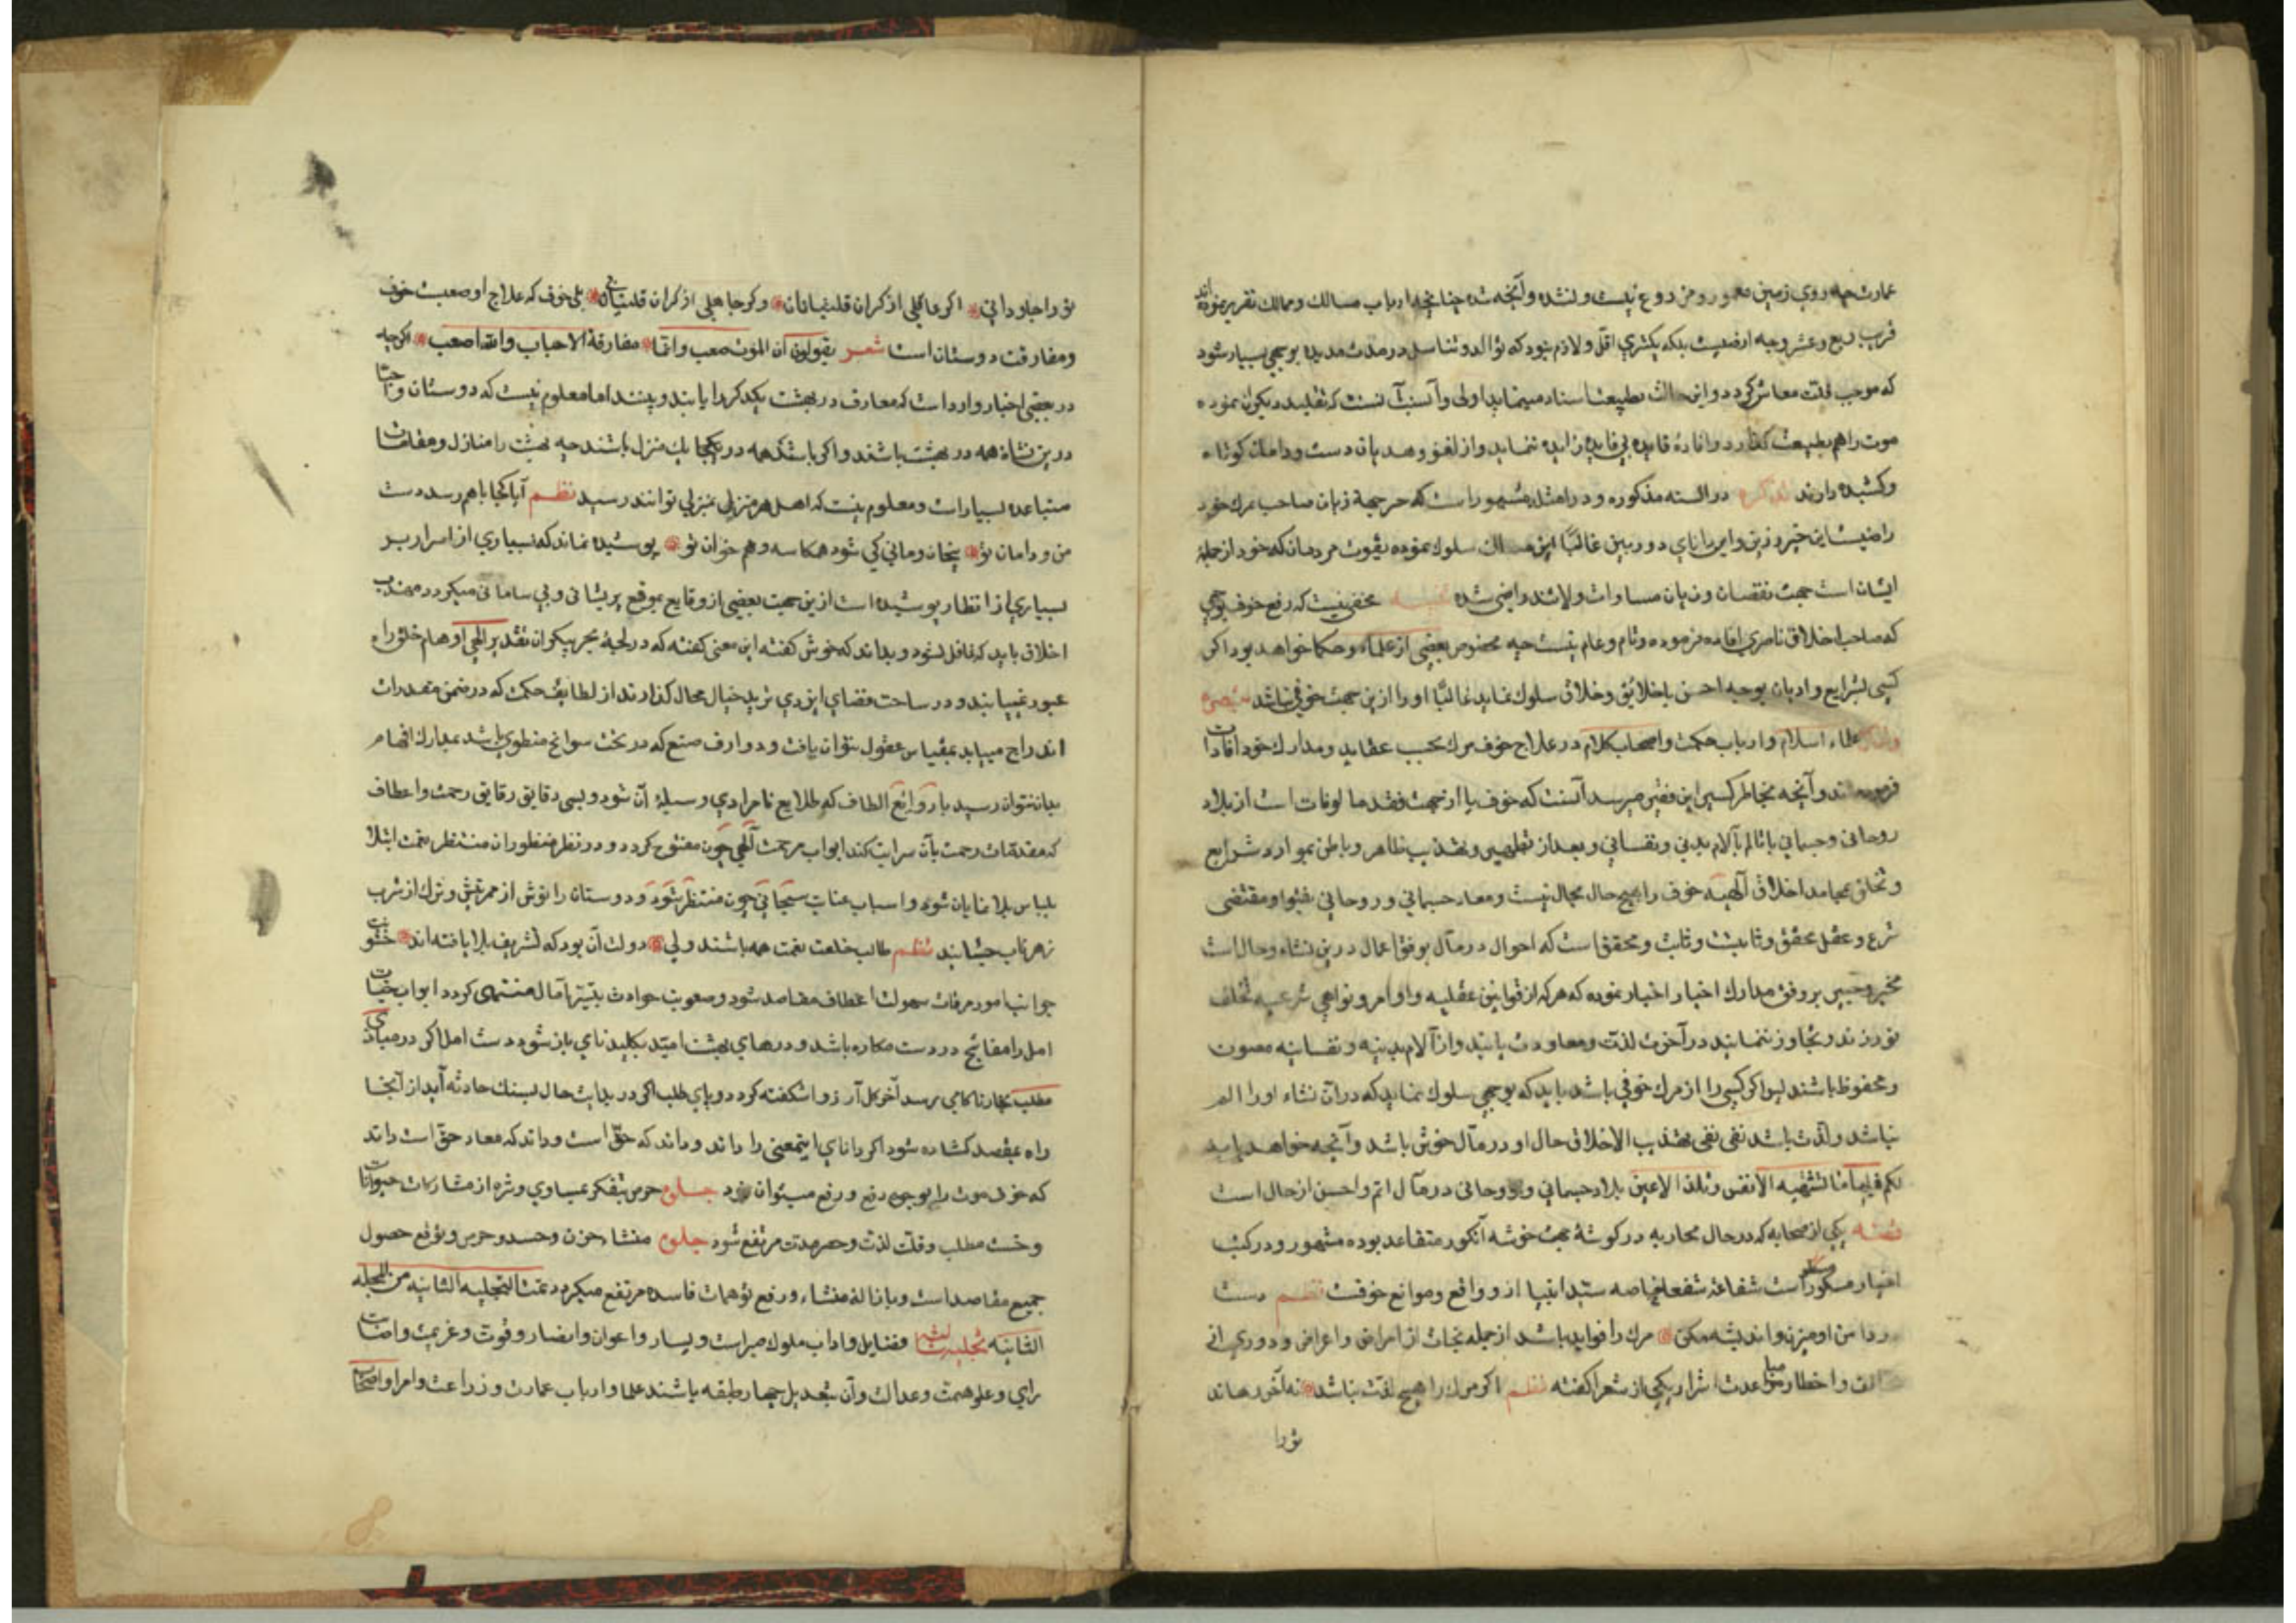 عمارت چه روی زمین معمور و مزروع نیست و نشده و آنچه شده چنانچه ارباب مسالک و ممالک تقریر نموده‌اند
قریب ربع و عشر و چه ارضیست بلکه بکثری اقل و لازم نبود که توالد و تناسل در مدت مدیده بوجهی بسیار شود
که موجب قلت معاش گردد و این حالت بطبیعت اسناد مینماید اولی و آنسب آنست که تقلید دیگران نموده
موت را هم بطبیعت گذارد و افاده قایده بی فایده زایده ننماید و از لغو و هدیان دست و دامان کوتاه
و کشیده دارند تذکره در السنه مذکوره و در امثله مشهور است که حرجمة زیان صاحب مرک خود
راضیست این خبر و زین و این دانای دوربین غالبًا این مسالک سلوک نموده بقوت مردمان که خود از جمله
ایشان است جهت نقصان و زیان مساوات ولاشد راضی شده مخفی نیست که رفع خوف بوجهی
که صاحب اخلاق ناصری افاده فرموده و تام و عام نیست چه مخصوص بعضی از علماء و حکما خواهد بود اگر
کسی بشرایع و ادیان بوجه احسن باخلایق و خلاق سلوک نماید غالبًا او را ازین جهت خوفی نباشد تبصره
علماء اسلام و ارباب حکمت و اصحاب کلام در علاج خوف مرک بحسب عقاید و مدارک خود افادات
فرموده‌اند و آنچه بخاطر کسیر این فقیر میرسد آنست که خوف یا از جهت فقد مالوفات است از بلاد
روحانی و جسمانی یا تالم بآلام بدنی و نفسانی و بعد از تطهیر و تهذیب ظاهر و باطن بموارد شرایع
و تخلق بمحامد اخلاق آلهیه خوف را بهیچ حال مجال نیست و معاد جسمانی و روحانی بفتوا و مقتضی
شرع و عقل محقق و ثابت و ثابت و محقق است که احوال در مآل بوفق اعمال درین نشاء و حال است
مخبر و خبیر بر وفق مدارک اخیار اخبار نموده که هر که از قوانین عقلیه و اوامر و نواهی شرعیه تخلف
نورزند و تجاوز ننمایند در آخرت لذت و معاودت یابند و از آلام بدنیه و نفسانیه مصون
و محفوظ باشند لیوا کر کسی را از مرک خوفی باشد باید که بوجهی سلوک نماید که در آن نشاء او را الم
نباشد و لذت باشد نفی نفی تهذیب الاخلاق حال او در مآل خوش باشد و آنچه خواهد یابد
لکم فیها ما تشتهیه الانفس و تلذ الاعین بلاد جسمانی و روحانی در مآل اتم و احسن از حال است
یکی از صحابه که در حال محاربه در گوشۀ جهت خوشه آنکور متقاعد بوده مشهور و در کتب
اخبار مسطور است شفاعت شفعا خاصه سید انبیا از وواقع و موانع خوفست نظم دست
در دامن او میزن و اندیشه مکن مرک را فواید باشد از جمله نجات از امراض و اعراض و دوری از
و اخطار مباعدت اشرار یکی از شعرا کفته نظم اگر مرک را هیچ لذت نباشد نه آخر رهاند
تو را
تو را جاودانی اگر عاقلی از کران قلتبانان وگر جاهلی از کران قلتبانی بلی خوف که علاج او صعبست خوف
و مفارقت دوستان است شعر یقولون ان الموت صعب و انما مفارقة الاحباب والله اصعب اگرچه
در بعضی اخبار وارد است که معارف در بهشت یکدیگر را یابند و بینند اما معلوم نیست که دوستان و احبّا
درین نشاة همه در بهشت باشند و اگر باشد همه در یکجا یک منزل باشند چه بهشت را منازل و مقامات
متباعده بسیار است و معلوم نیست که اهل هر منزلی بمنزلی توانند رسید نظم آیا کجا با هم رسد دست
من و دامان تو بنجان و مانی کی شود همکاسه و هم خوان تو پوشیده نماند که بسیاری از اسرار بر
بسیاری از انظار پوشیده است ازین جهت بعضی از وقایع بموقع پریشانی و بی سامانی میگردد مهذب
اخلاق باید که غافل نشود و بداند که خوش کفته این معنی کفته که در لجۀ بحر بیکران تقدیر الهی اوهام خلق راه
عبور نمییابند و در ساحت فضای ایزدی نرید خیال محال کذارند از لطایف حکمت که در ضمن مقدرات
اندراج مییابد بمقیاس عقول نتوان یافت و دوارف صنع که در تحت سوانح منطوی باشد بمدارک افهام
بدان نتوان رسید یا روانع الطاف که طلایع نامرادی وسیلۀ آن شود و بسی دقایق رقایق رحمت و اعطاف
که مقدمات رحمت بآن سرایت کند ابواب مرحمت آلهی چون مفتوح گردد و در نظر منظوران منتظر نعمت ابتلا
بلباس بلا نمایان شود و اسباب عنایت سبحانی چون منتظر شود و دوستان را نوش از ممر نیش و ترک از شرب
زهر ناب چشانید نظم طالب خلعت نعمت همه باشند ولی دولت آن بود که تشریف بلا یافته‌اند خشونت
جوانب امور مرقات سهولت اعطاف مقاصد شود و صعوبت حوادث بتیسر آمال منتهی گردد ابواب خیبات
امل را مفاتیح در دست مکاره باشد و درهای بهشت امید بکلید نای باز شود دست امل اگر در مبادی
مطلب بخار ناکامی برسد آخر کل آرزوا شکفته گردد و پای طلب اگر در بدایت حال بسنک حادثه آید از آنجا
راه بمقصد کشاده شود اگر دانای اینمعنی را داند و داند که حق است و داند که معاد حق است داند
که خوف موت را بوجهی دفع و رفع میتوان نمود جلوه حرص بتفکر عیساوی و شره از مشارکات حیوانات
و خست مطلب و قلت لذت و حصر مدت مرتفع شود جلوه منشاء حزن و حسد و حرص و توقع حصول
جمیع مقاصد است و بازالۀ منشاء و رفع توهمات فاسده مرتفع میگردد تمت التجلیه الثانیه من المجله
الثانیه تجلیه ثالثه فضایل و اداب ملوک صبراست و یسار و اعوان و انصار و قوت و عزیمت و اصابت
رای و علو همت و عدالت و آن بتعدیل چهار طبقه باشند علما و ارباب عمارت و زراعت و امرا و اصحاب